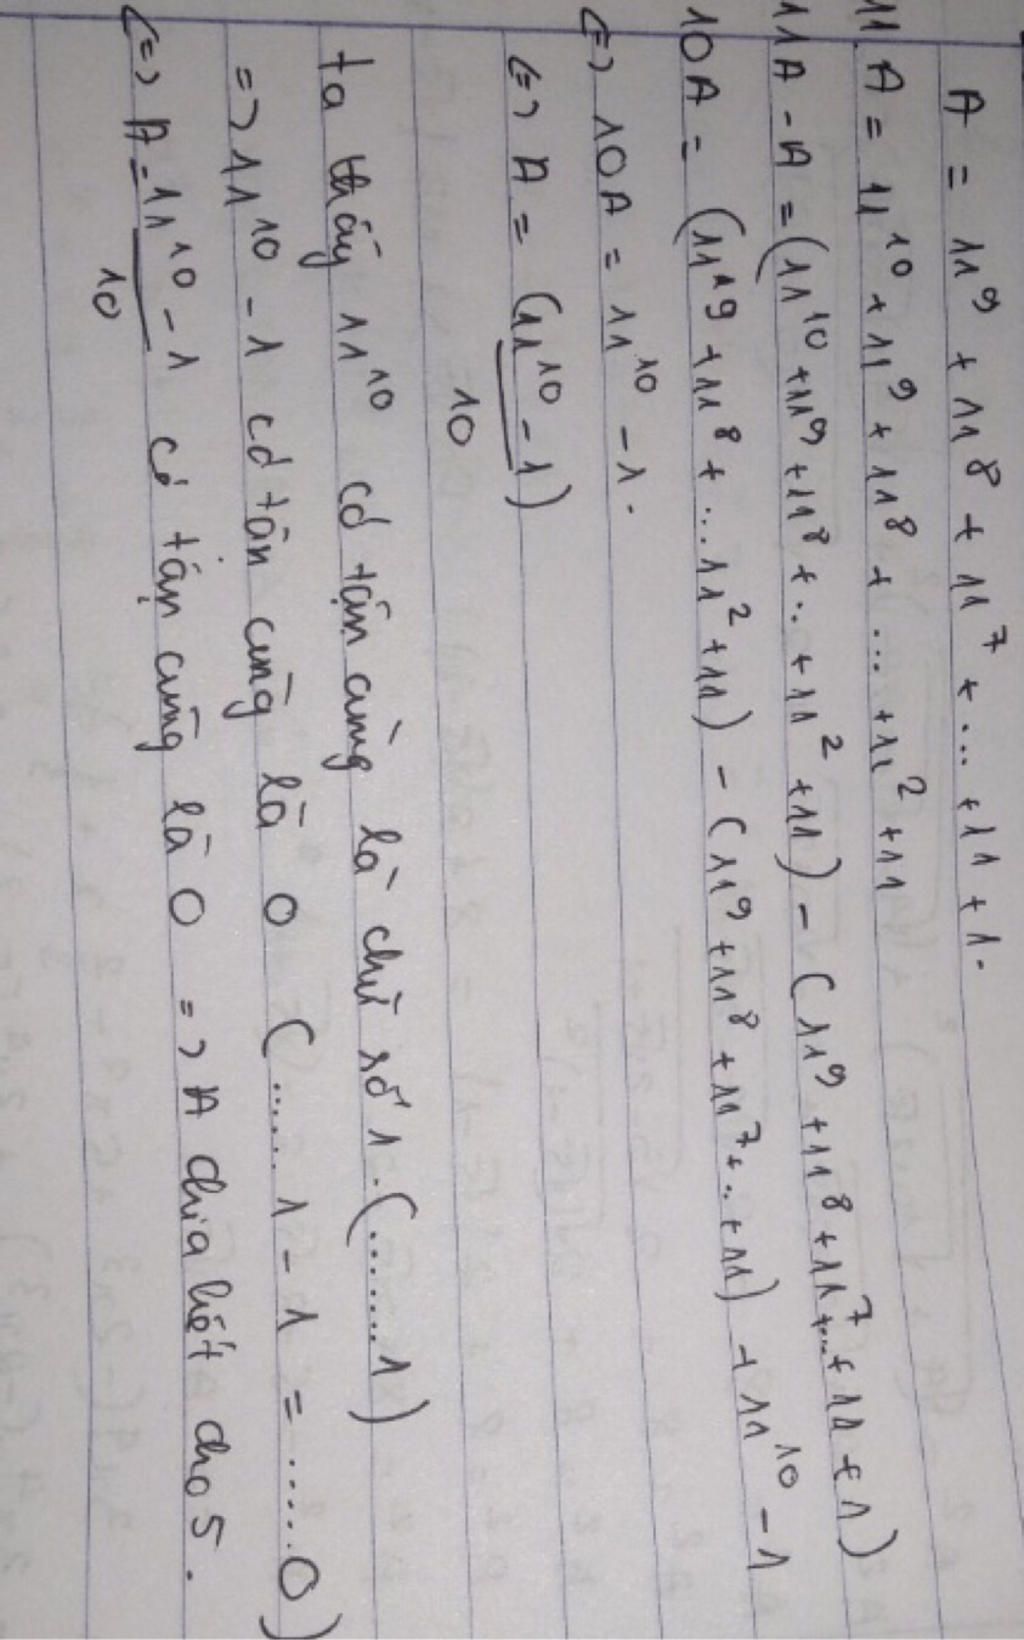 A = 11⁹ + 11⁸ + 11⁷ + ... + 11 + 1.
11.A = 11¹⁰ + 11⁹ + 11⁸ + ... + 11² + 11
11A - A = (11¹⁰ + 11⁹ + 11⁸ + .. + 11² + 11) - (11⁹ + 11⁸ + 11⁷ + ... + 11 + 1)
10A = (11⁹ + 11⁸ + ... 11² + 11) - (11⁹ + 11⁸ + 11⁷ + .. + 11) + 11¹⁰ - 1
<=> 10A = 11¹⁰ - 1.
<=> A = (11¹⁰ - 1)
10
ta thấy 11¹⁰ có tận cùng là chữ số 1. (.......1)
=> 11¹⁰ - 1 có tận cùng là 0 (..... 1 - 1 = .....0)
<=> A = 11¹⁰ - 1 có tận cùng là 0 => A chia hết cho 5.
10